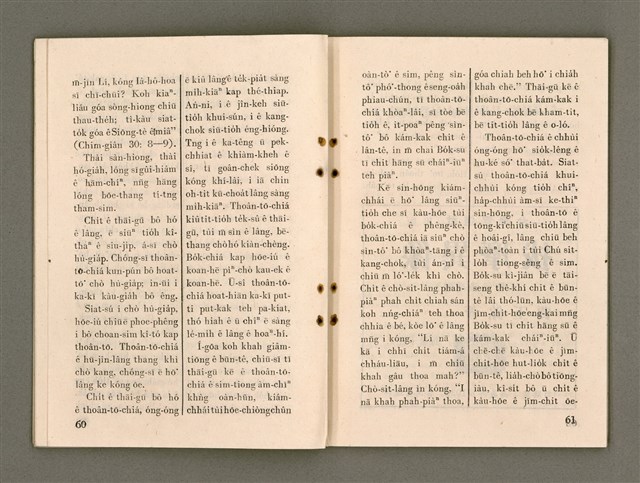 m̄-jīn Lí, kóng Iâ-hô-hoa
sī chī-chūi? Koh kiaⁿ-
liáu góa sòng-hiong chiū
thau-the̍h; tì-kàu siat-
to̍k góa ê Siōng-tè ê miâ”
(Chim-giân 30: 8—9).
Thài sàn-hiong, thài
hó-gia̍h, lóng sī gûi-hiám
ê hām-chīⁿ, nn̄g hāng
lóng bōe-thang tì-tng
tham-sim.
Chi̍t ê thāi-gū bô hó
ê lâng, ē siūⁿ tio̍h kî-
thaⁿ ê siu-ji̍p, á-sī chò
hù-gia̍p. Chóng-sī thoân-
tō-chiá kun-pún bô hoat-
tō͘ chò hù-gia̍p; in-ūi i
ka-kī kàu-gia̍h bô êng.
Siat-sú i chò hù-gia̍p,
hōe-iú chiū ē phoe-phêng
i bô choan-sim kî-tó kap
thoân-tō. Thoân-tō-chiá
ê hū-jîn-lâng thang khì
chò kang, chóng-sī ē hō͘
lâng ke kóng ōe.
Chi̍t ê thāi-gū bô hó
ê thoân-tō-chiá, óng-óng
60
ē kiû lâng ê te̍k-pia̍t sàng
mi̍h-kiāⁿ kap thó-thiap.
Án-ni, i ê jîn-keh siū-
tio̍h khui-sún, i ê kang-
chok siū-tio̍h éng-hióng.
Tng i ê ka-têng ū pek-
chhiat ê khiàm-khoeh ê
sî, tī goân-chek siōng
kóng khí-lâi, i iā chin
oh-tit kū-choa̍t lâng sàng
mi̍h-kiāⁿ. Thoân-tō-chiá
kiû tit-tio̍h te̍k-sû ê thāi-
gū, tùi m̄ sìn ê lâng, bē-
thang chò hó kiàn-chèng.
Bo̍k-chiá kap hōe-iú ê
koan-hē piⁿ-chò kau-e̍k ê
koan-hē. Ū-sî thoân-tō-
chiá hoat-hiān ka-kī put-
tì put-kak teh pa-kiat,
thó hiah ê ū chîⁿ ê sàng
lé-mi̍h ê lâng ê hoaⁿ-hí.
I-góa koh khah giâm-
tiōng ê būn-tê, chiū-sī tī
thāi-gū kē ê thoân-tō-
chiá ê sim-tiong àm-chīⁿ
khǹg oàn-hūn, kiám-
chhái tùi hōe-chiòng chûn
oàn-tò͘ ê sim, pêng sin-
tò͘ phó͘-thong ê seng-oa̍h
phiau-chún, tī thoân-tō-
chiá khòaⁿ-lâi, sī tòe bē
tio̍h ê, it-poaⁿ pêng sìn-
tô͘ bô kám-kak chit ê
lân-tê, in m̄ chai Bo̍k-su
tī chit hāng sū chāiⁿ-iūⁿ
teh piàⁿ.
Kē sin-hōng kiám-
chhái ē hō͘ lâng siūⁿ-
tio̍h che sī kàu-hōe tùi
bo̍k-chiá ê phêng-kè,
thoân-tō-chiá iā siūⁿ chò
sìn-tô͘ bô khòaⁿ-tāng i ê
kang-chok, tùi án-ni i
chiū m̄ lō͘-le̍k khì chò.
Chit ê chò-sit-lâng phah-
piàⁿ phah chit chiah sán
koh nńg-chiáⁿ teh thoa
chhia ê bé, kòe lō͘ ê lâng
mn̄g i kóng, “Lí nā ke
kā i chhī chi̍t tiâm-á
chháu-liāu, i m̄ chiū
khah gâu thoa mah?”
Chò-sit-lâng ìn kóng, “I
nā khah phah-piàⁿ thoa,
góa chiah beh hō͘ i chia̍h
khah chē.” Thāi-gū kē ê
thoân-tō-chiá kám-kak i
ê kang-chok bē kham-tit,
bē tit-tio̍h lâng ê o-ló.
Thoân-tō-chiá ê chhùi
óng-óng hō͘ sio̍k-lêng ê
hu-ké só͘ that-ba̍t. Siat-
sú thoân-tō-chiá khui-
chhùi kóng tio̍h chîⁿ,
ha̍p-chhùi àm-sī ke-thiⁿ
sin-hōng, i thoân-tō ê
tōng-ki chiū siū-tio̍h lâng
ê hoâi-gî, lâng chiū beh
phòaⁿ-toàn i tùi Chú sit-
lo̍h tiong-sêng ê sim.
Bo̍k-su kì-jiân bē ē tāi-
seng thê-khí chit ê būn-
tê lâi thó-lūn, kàu-hōe ê
jīm-chit-hōe eng-kai mn̄g
Bo̍k-su tī chit hāng sū ê
kám-kak chāiⁿ-iūⁿ. Ū
chē-chē kàu-hōe ê jīm-
chit-hōe hut-lio̍k chit ê
būn-tê, lia̍h-chò bô tiōng-
iàu, kî-si̍t bô ū chit ê
kàu-hōe ê jīm-chit ōe-
61